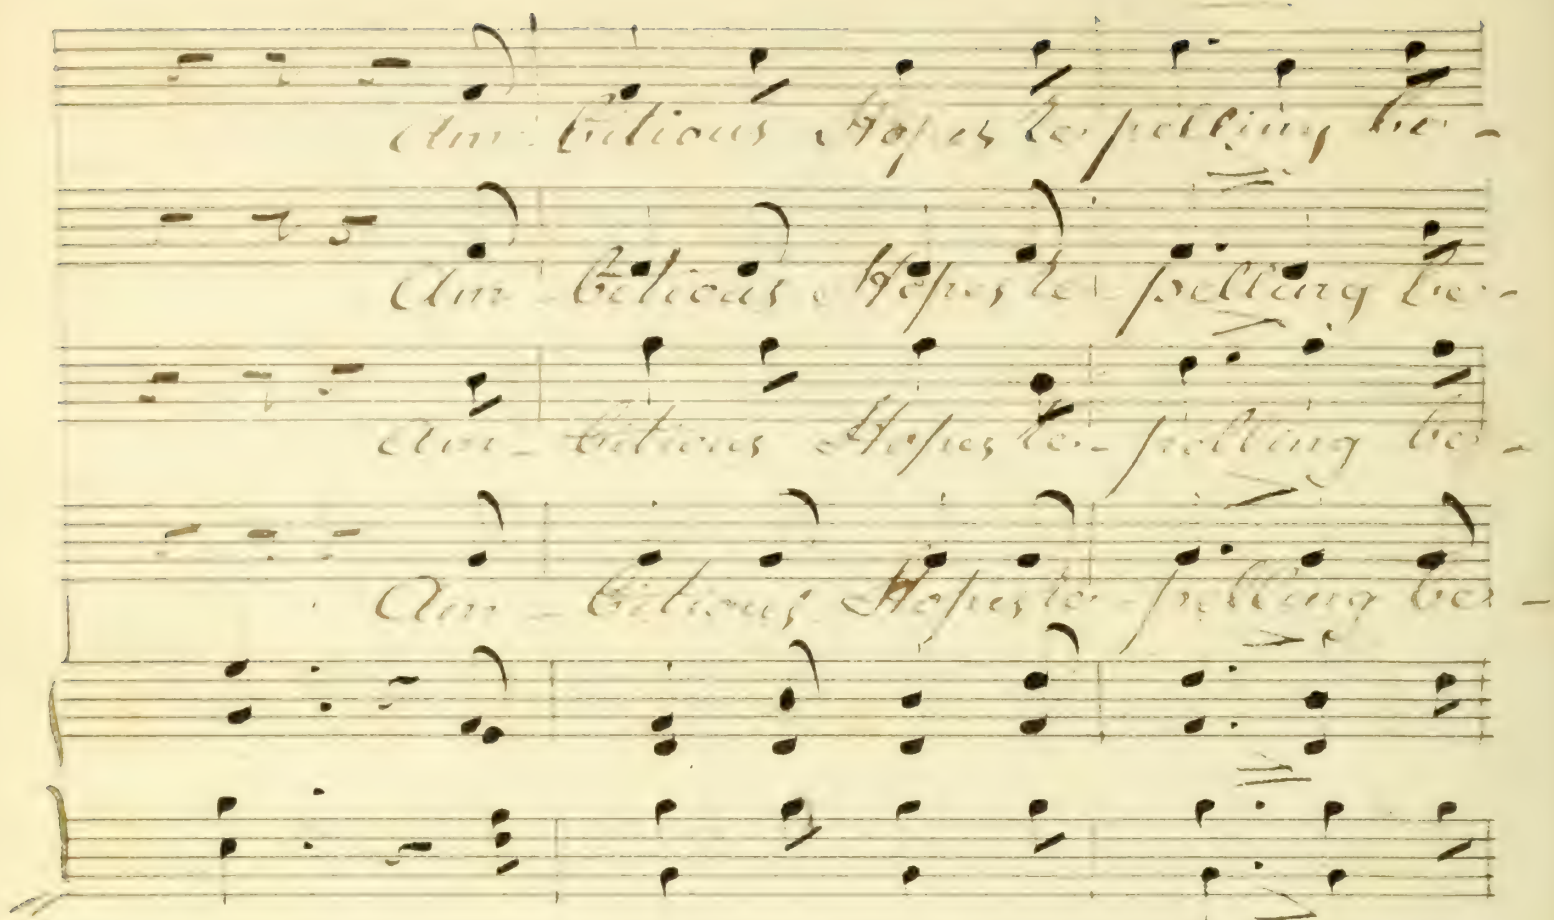 Am - bitious Hopes re - pelling be -
Am - bitious Hopes re - pelling be -
Am - bitious Hopes re - pelling be -
Am - bitious Hopes re - pelling be -